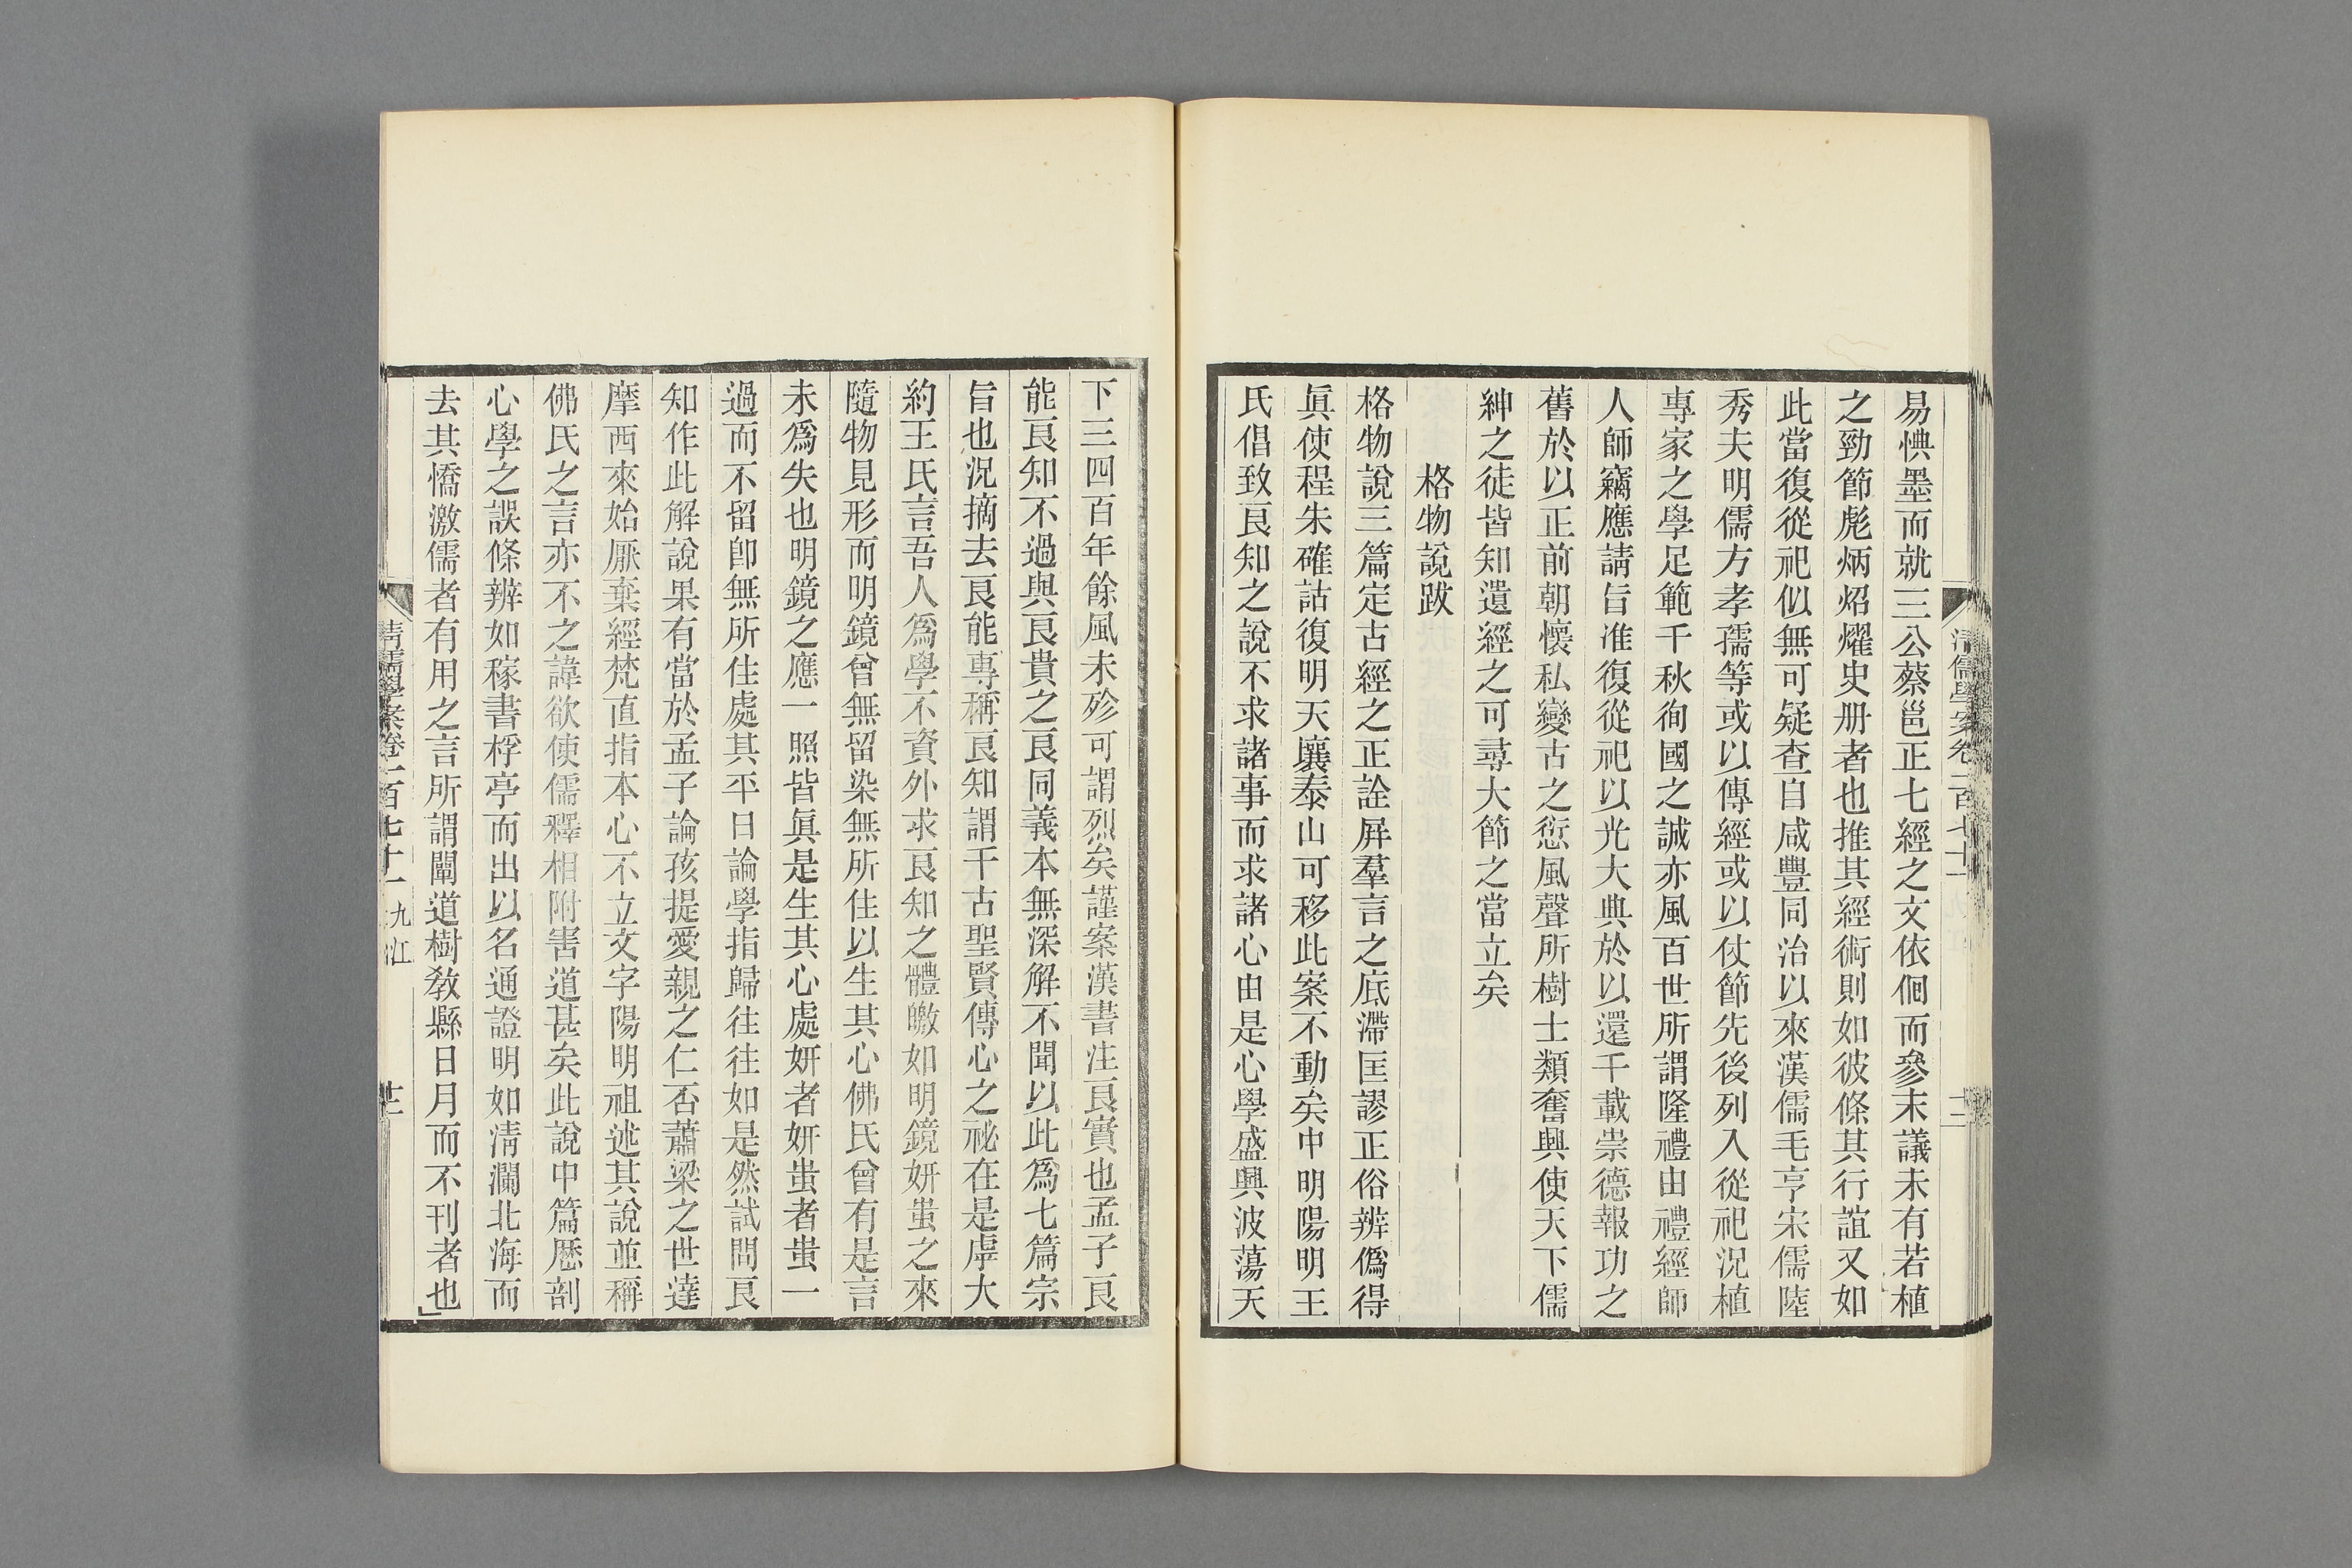 清儒學案卷一百七十一
十二
易悏墨而就三公蔡邕正七經之文依佪而參末議未有若植
之勁節彪炳炤燿史册者也推其經術則如彼條其行誼又如
此當復從祀似無可疑查自咸豐同治以來漢儒毛亨宋儒陸
秀夫明儒方孝孺等或以傳經或以仗節先後列入從祀況植
專家之學足範千秋徇國之誠亦風百世所謂隆禮由禮經師
人師竊應請旨准復從祀以光大典於以還千載崇德報功之
舊於以正前朝懷私變古之愆風聲所樹士類奮興使天下儒
紳之徒皆知遺經之可尋大節之當立矣
格物說跋
格物說三篇定古經之正詮屏羣言之底滯匡謬正俗辨僞得
眞使程朱確詁復明天壤泰山可移此案不動矣中明陽明王
氏倡致良知之說不求諸事而求諸心由是心學盛興波蕩天
下三四百年餘風未殄可謂烈矣謹案漢書注良實也孟子良
能良知不過與良貴之良同義本無深解不聞以此爲七篇宗
旨也況摘去良能專稱良知謂千古聖賢傳心之祕在是虖大
約王氏言吾人爲學不資外求良知之體皦如明鏡妍蚩之來
隨物見形而明鏡曾無留染無所住以生其心佛氏曾有是言
未爲失也明鏡之應一照皆眞是生其心處妍者妍蚩者蚩一
過而不留卽無所住處其平日論學指歸往往如是然試問良
知作此解說果有當於孟子論孩提愛親之仁否蕭梁之世達
摩西來始厭棄經梵直指本心不立文字陽明祖述其說並稱
佛氏之言亦不之諱欲使儒釋相附害道甚矣此說中篇歷剖
心學之誤條辨如稼書桴亭而出以名通證明如淸瀾北海而
去其憍激儒者有用之言所謂闡道樹敎縣日月而不刊者也
清儒學案卷一百七十一 九江
十三